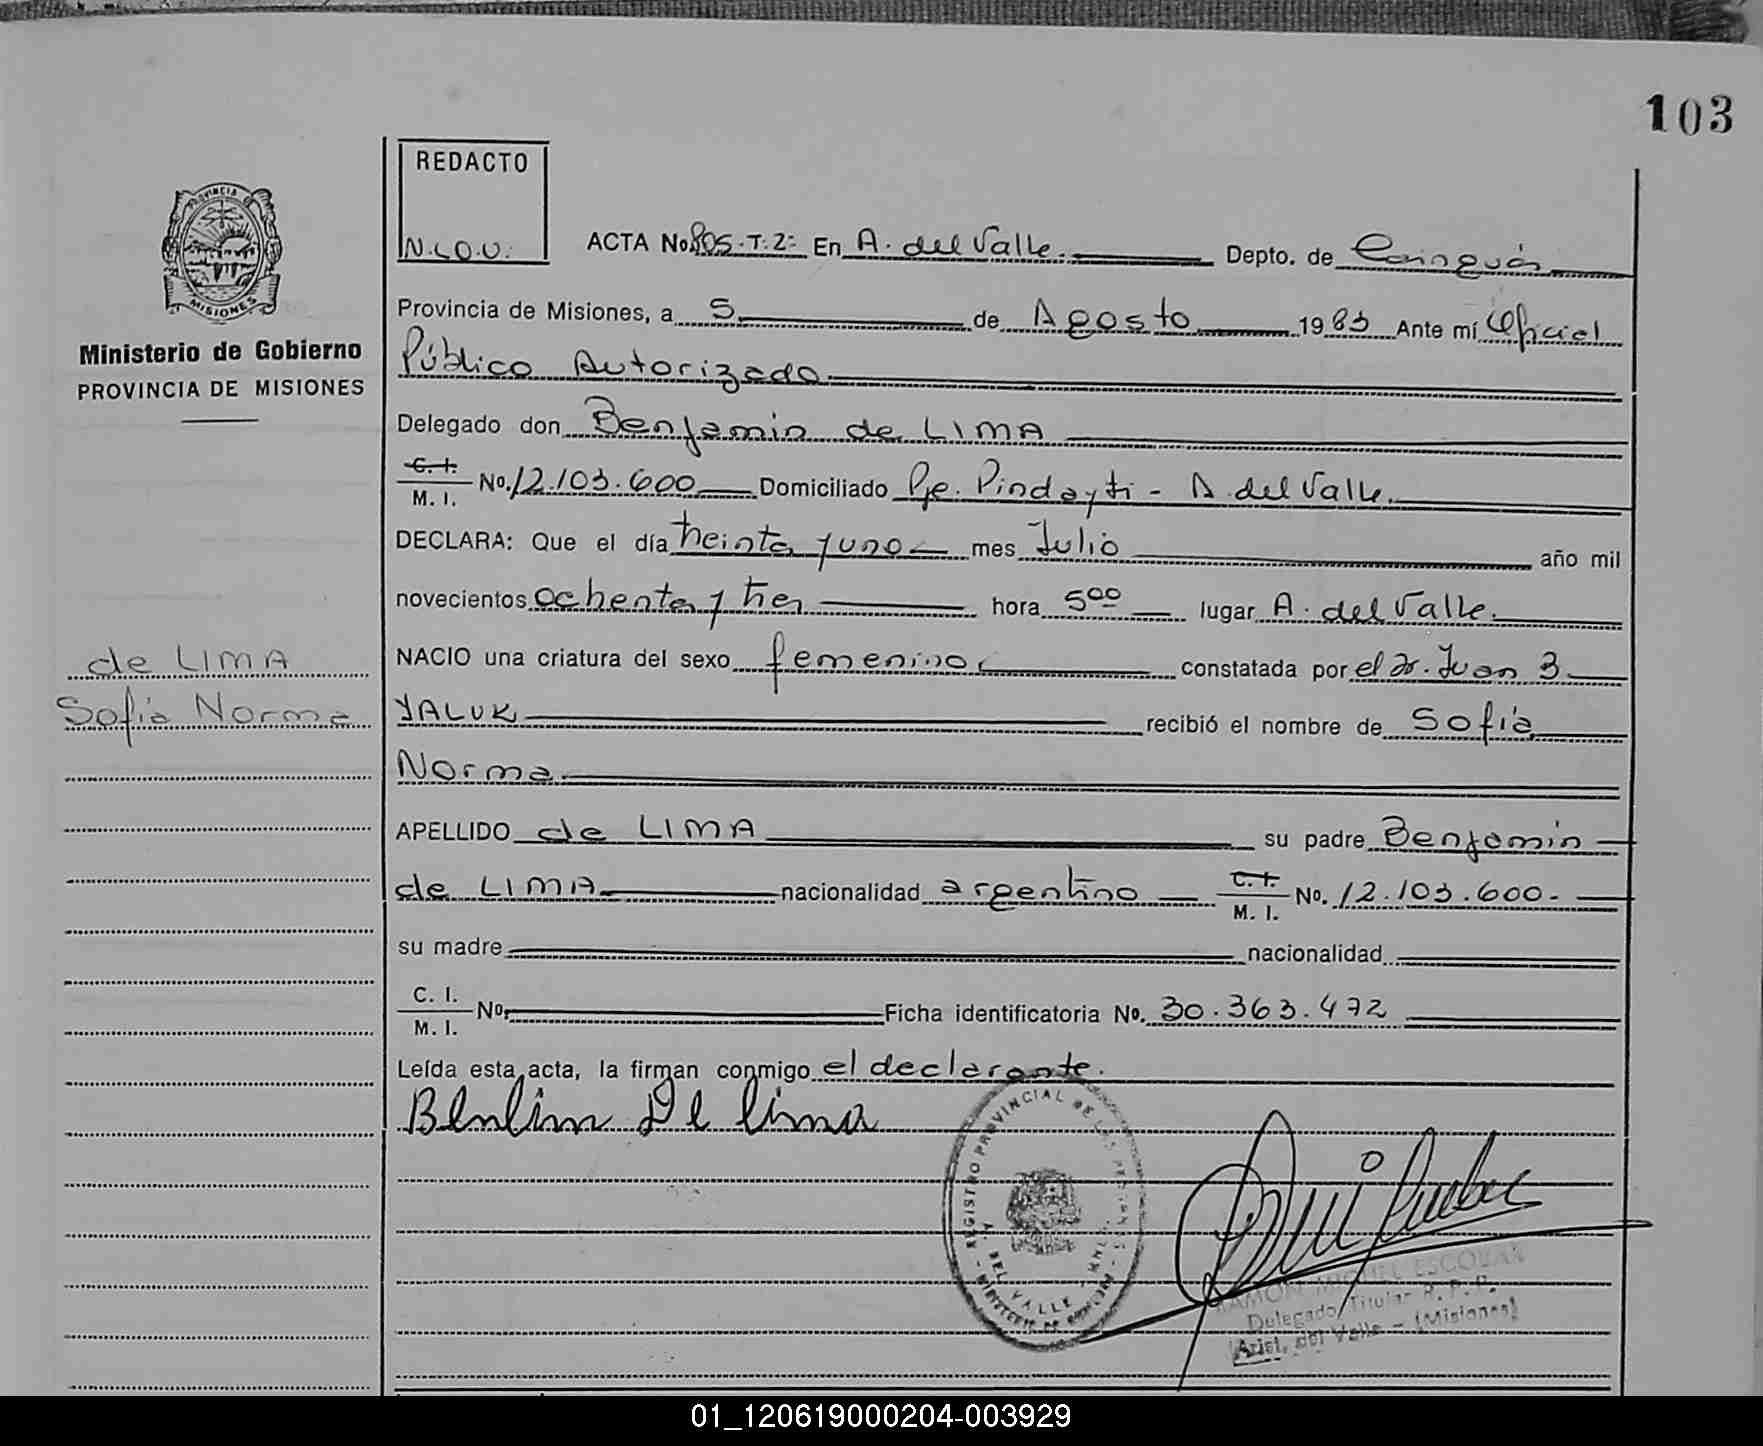 103
REDACTO
N.L.O.U.
ACTA No. 805-T:2- En A. del Valle. Depto. de Cainguás
Provincia de Misiones, a 5 de Agosto 1983 Ante mí Oficial
Público Autorizado
PROVINCIA DE
MISIONES
Ministerio de Gobierno
PROVINCIA DE MISIONES
Delegado don Benjamin de LIMA
C. I.
M. I. No. 12.103.600 Domiciliado Pje. Pindayti - A. del Valle.
DECLARA: Que el día treinta y uno mes Julio año mil
novecientos ochenta y tres hora 5⁰⁰ lugar A. del Valle.
de LIMA
Sofia Norma
NACIO una criatura del sexo femenino constatada por el Dr. Juan B.
YALUK recibió el nombre de Sofia
Norma
APELLIDO de LIMA su padre Benjamin
de LIMA nacionalidad argentino C. I.
M. I. No. 12.103.600.-
su madre nacionalidad
C. I.
M. I. No. Ficha identificatoria No. 30.363.472
Leída esta acta, la firman conmigo el declarante.
Benlim De lima
REGISTRO PROVINCIAL DE LAS PERSONAS
A. DEL VALLE - MNES.
MINISTERIO DE GOBIERNO
RAMON MIGUEL ESCOBAR
Delegado Titular R. P. P.
Arist. del Valle - (Misiones)
01_120619000204-003929